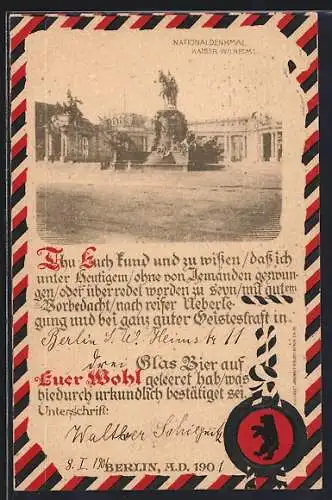 NATIONALDENKMAL
KAISER WILHELM I.
Thu Euch kund und zu wißen/daß ich
unter Heutigem/ohne von Jemanden gezwun-
gen/oder überredet worden zu seyn/mit gutem
Vorbedacht/nach reifer Ueberle-
gung und bei ganz guter Geisteskraft in
Berlin S. W. 11
drei Glas Bier auf
Euer Wohl geleeret hab/was
hiedurch urkundlich bestätiget sei.
Unterschrift:
Walther
8. I 1901 BERLIN, A.D. 1901